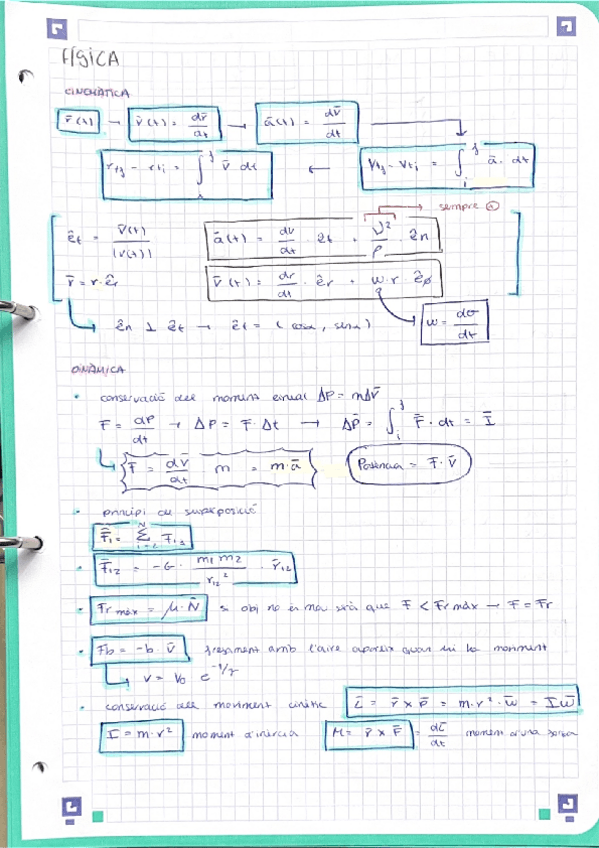 FÍSICA
CINEMÀTICA
r̄(t) → v̄(t) = dr̄/dt → ā(t) = dv̄/dt
r_tj - r_ti = ∫_i^j v̄ dt ← v_tj - v_ti = ∫_i^j ā · dt
→ sempre ⊕
ê_t = v̄(t)/|v(t)| ā(t) = dv/dt · ê_t + v²/ρ · ê_n
r̄ = r · ê_r v̄(t) = dr/dt · ê_r + w·r ê_ø
ê_n ⊥ ê_t → ê_t = (cosα, sinα) w = dσ/dt
DINÀMICA
• conservació del moment lineal ΔP = mΔv̄
F̄ = dP/dt → ΔP = F̄·Δt → ΔP̄ = ∫_i^j F̄ · dt = Ī
F̄ = dv̄/dt m = m·ā Potència = F̄·v̄
• principi de superposició
F̄₁ = Σ F₁₂
• F̄₁₂ = -G · m₁m₂/r₁₂² · r̄₁₂
• Fr màx = μ·N̄ si obj no és mou serà que F < Fr màx → F = Fr
• Fb = -b · v̄ fregament amb l'aire apareix quan hi ha moviment
v = v₀ e
• conservació del moviment L̄ = r̄ × p̄ = m·r²·w̄ = Iw̄
I = m·r² moment d'inèrcia M = r̄ × F̄ = dL̄/dt moment d'una força